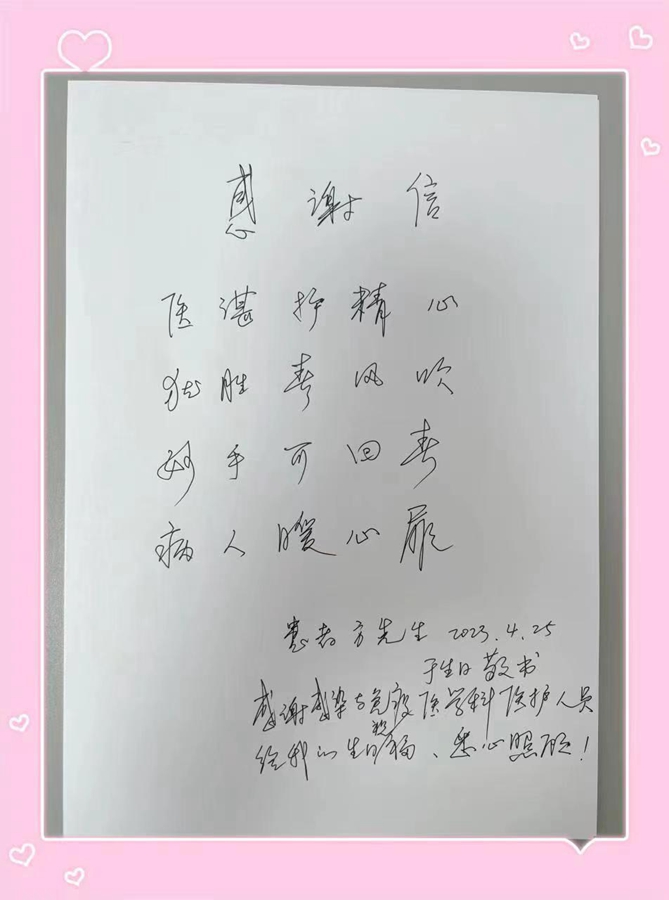 感谢信
医湛护精心
犹胜春风吹
妙手可回春
病人暖心扉
患者方先生 2023.4.25
于生日敬书
感谢感染与免疫医学科医护人员
给我的生日祝福、悉心照顾！